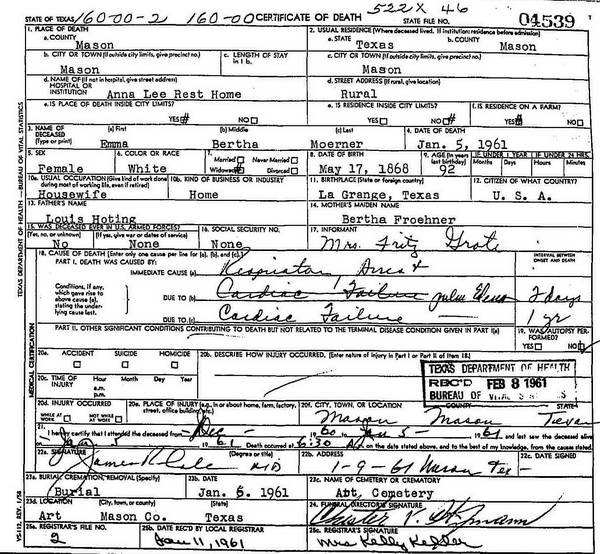 STATE OF TEXAS 160-00-2 160-00 CERTIFICATE OF DEATH 522X 46 STATE FILE NO. 04539
1. PLACE OF DEATH
a. COUNTY
Mason
2. USUAL RESIDENCE (Where deceased lived. If institution: residence before admission)
a. STATE Texas b. COUNTY Mason
b. CITY OR TOWN (If outside city limits, give precinct no.)
Mason
c. LENGTH OF STAY in 1 b.
c. CITY OR TOWN (If outside city limits, give precinct no.)
Mason
d. NAME OF (If not in hospital, give street address)
HOSPITAL OR INSTITUTION Anna Lee Rest Home
d. STREET ADDRESS (If rural, give location)
Rural
e. IS PLACE OF DEATH INSIDE CITY LIMITS?
YES NO
e. IS RESIDENCE INSIDE CITY LIMITS?
YES NO
f. IS RESIDENCE ON A FARM?
YES NO
3. NAME OF DECEASED (Type or print)
(a) First Emma
(b) Middle Bertha
(c) Last Moerner
4. DATE OF DEATH
Jan. 5, 1961
5. SEX
Female
6. COLOR OR RACE
White
7. Married Never Married
Widowed Divorced
8. DATE OF BIRTH
May 17, 1868
9. AGE (In years last birthday) 92
IF UNDER 1 YEAR IF UNDER 24 HRS.
10a. USUAL OCCUPATION (Give kind of work done during most of working life, even if retired)
Housewife
10b. KIND OF BUSINESS OR INDUSTRY
Home
11. BIRTHPLACE (State or foreign country)
La Grange, Texas
12. CITIZEN OF WHAT COUNTRY?
U. S. A.
13. FATHER'S NAME
Louis Hoting
14. MOTHER'S MAIDEN NAME
Bertha Froehner
15. WAS DECEASED EVER IN U.S. ARMED FORCES?
(Yes, no, or unknown) No
(If yes, give war or dates of service) None
16. SOCIAL SECURITY NO.
None
17. INFORMANT
Mrs. Fritz Grote
18. CAUSE OF DEATH (Enter only one cause per line for (a), (b), and (c).)
PART I. DEATH WAS CAUSED BY:
IMMEDIATE CAUSE (a) Respiratory Arrest
INTERVAL BETWEEN ONSET AND DEATH
Conditions, if any, which gave rise to above cause (a), stating the underlying cause last.
DUE TO (b) Cardiac Failure 2 days
DUE TO (c) Cardiac Failure 1 yr
PART II. OTHER SIGNIFICANT CONDITIONS CONTRIBUTING TO DEATH BUT NOT RELATED TO THE TERMINAL DISEASE CONDITION GIVEN IN PART I(a)
19. WAS AUTOPSY PERFORMED?
YES NO
20a. ACCIDENT SUICIDE HOMICIDE
20b. DESCRIBE HOW INJURY OCCURRED. (Enter nature of injury in Part I or Part II of Item 18.)
20c. TIME OF INJURY Hour Month Day Year
a.m.
p.m.
TEXAS DEPARTMENT OF HEALTH
REC'D FEB 8 1961
BUREAU OF VITAL STATISTICS
20d. INJURY OCCURRED
WHILE AT WORK NOT WHILE AT WORK
20e. PLACE OF INJURY (e.g. in or about home, farm, factory, street, office building, etc.)
20f. CITY, TOWN, OR LOCATION COUNTY STATE
Mason Mason Texas
21. I hereby certify that I attended the deceased from Dec 1960 to Jan 5 1961 and last saw the deceased alive
on Jan 5 1961 Death occurred at 6:30 on the date stated above, and to the best of my knowledge, from the causes stated.
22a. SIGNATURE (Degree or title)
MD
22b. ADDRESS
22c. DATE SIGNED
1-9-61 Mason Tex
23a. BURIAL, CREMATION, REMOVAL (Specify)
Burial
23b. DATE
Jan. 6, 1961
23c. NAME OF CEMETERY OR CREMATORY
Art, Cemetery
23d. LOCATION (City, town, or county) (State)
Art Mason Co. Texas
24. FUNERAL DIRECTOR'S SIGNATURE
25a. REGISTRAR'S FILE NO.
2
25b. DATE REC'D BY LOCAL REGISTRAR
Jan 11, 1961
25c. REGISTRAR'S SIGNATURE
Mrs Kelly Keller
TEXAS DEPARTMENT OF HEALTH — BUREAU OF VITAL STATISTICS
MEDICAL CERTIFICATION
VS-112, REV. 1/58